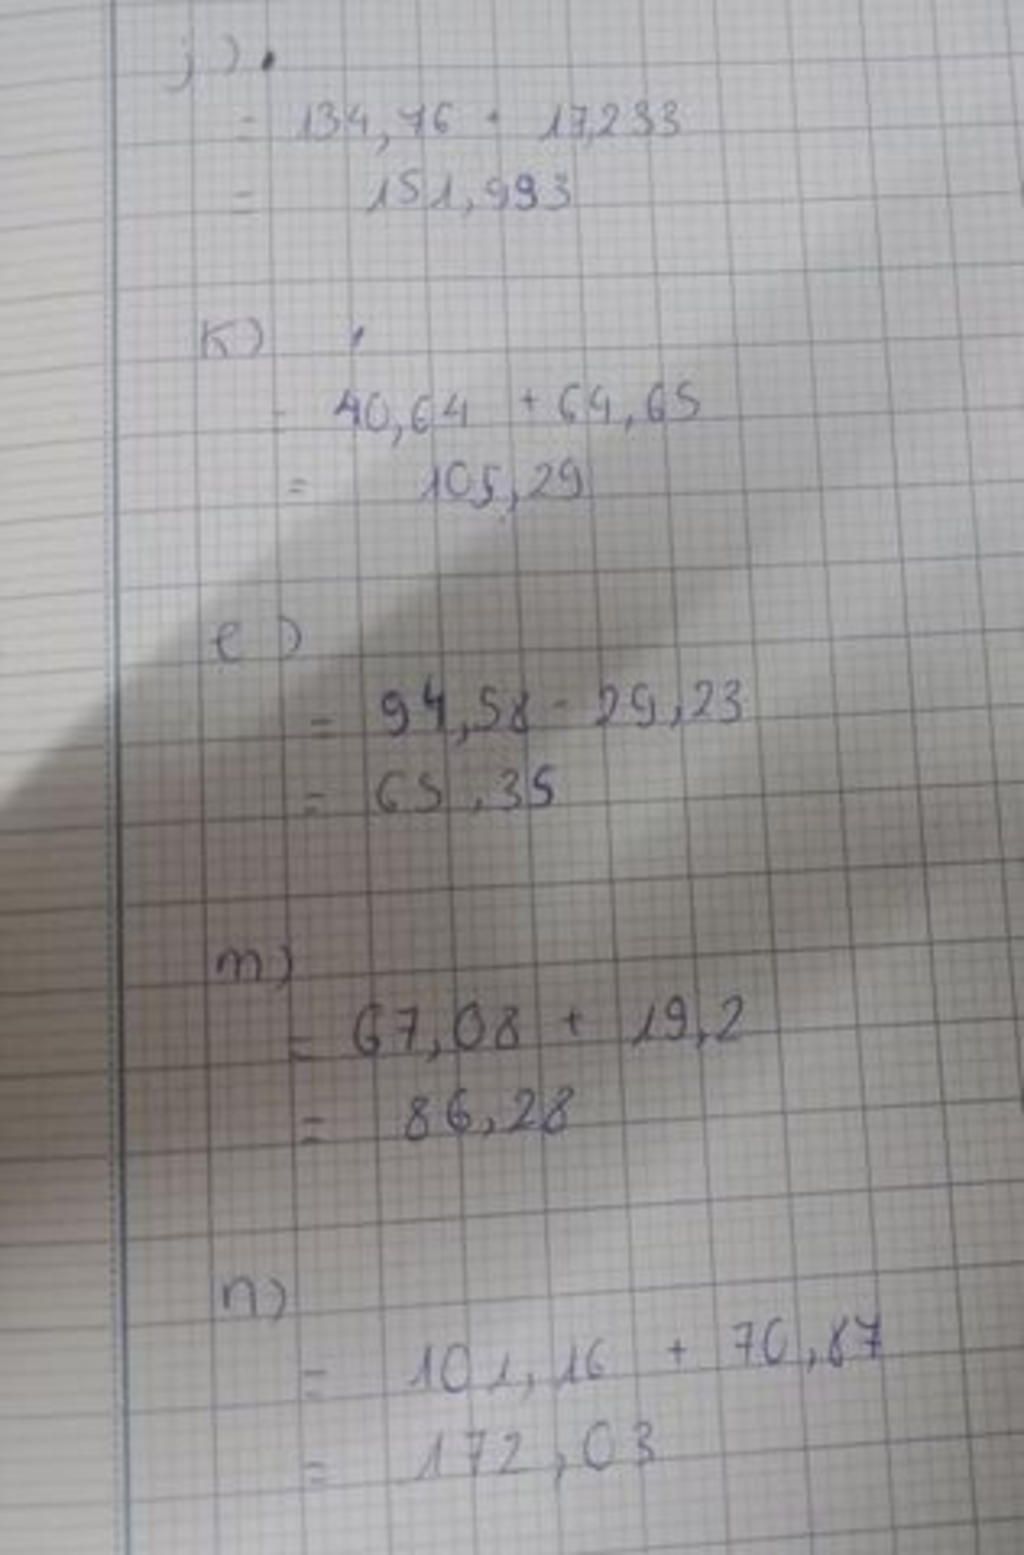 j)
= 134,76 + 17,233
= 151,993
k)
= 40,64 + 64,65
= 105,29
e)
= 94,58 - 29,23
= 65,35
m)
= 67,08 + 19,2
= 86,28
n)
= 101,16 + 70,87
= 172,03